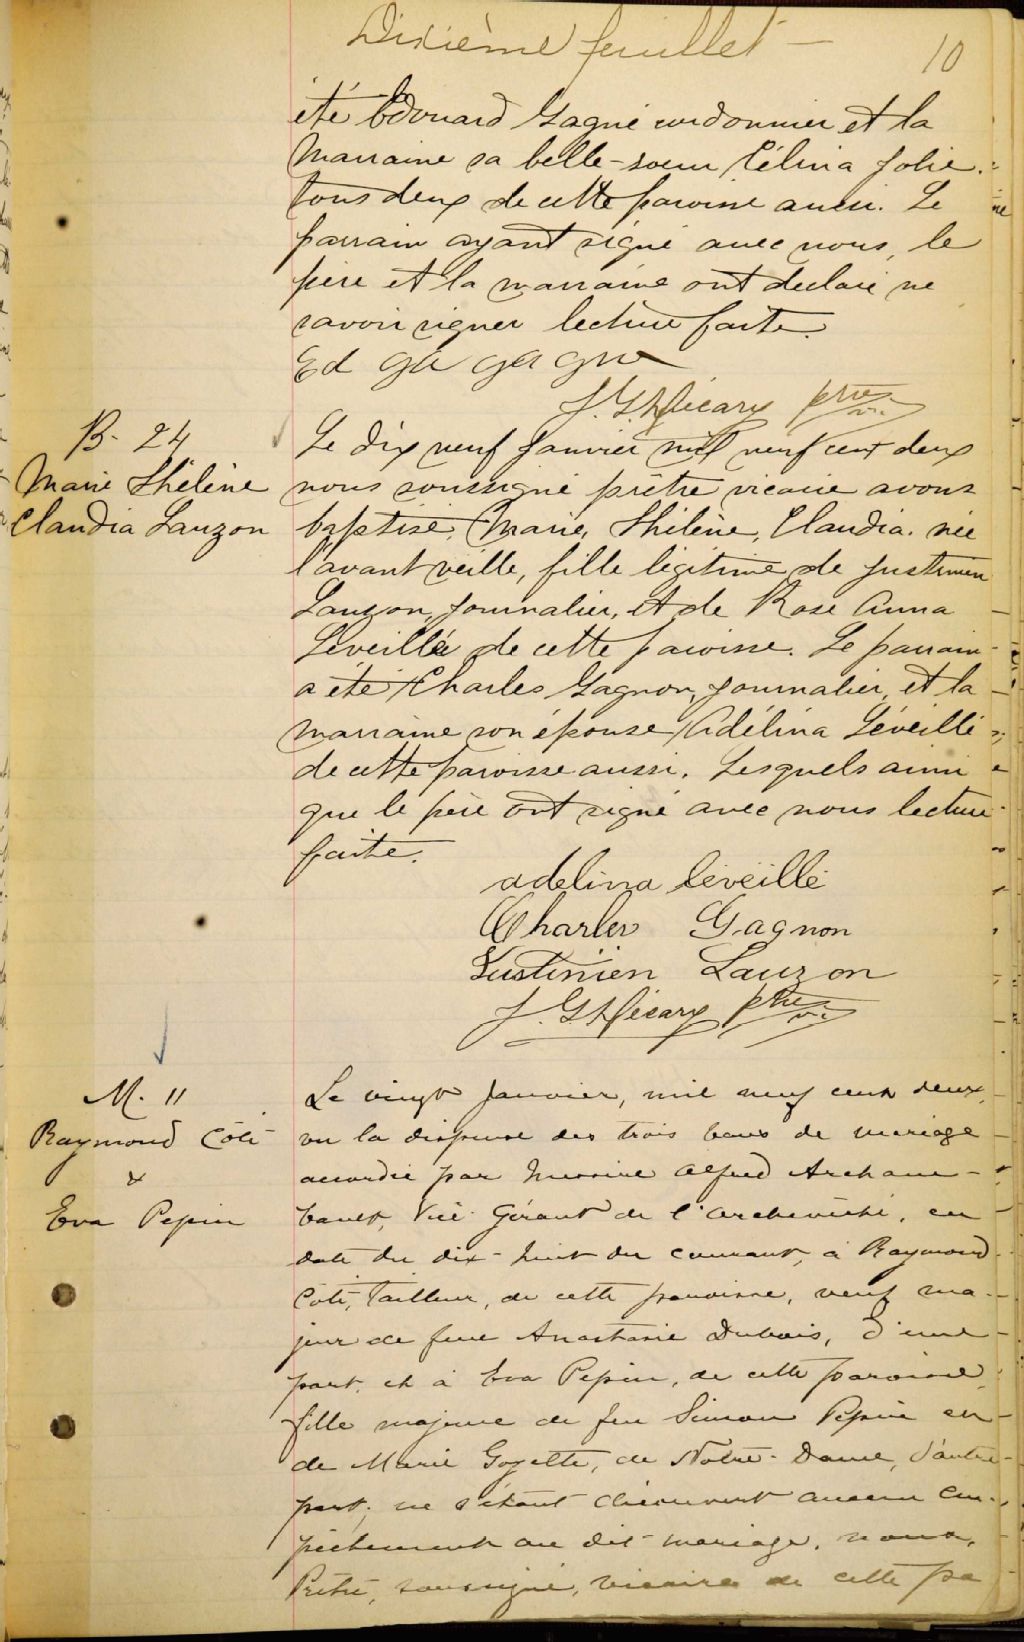 Dixième feuillet —
10
été Edouard Gagné cordonnier et la
Marraine sa belle-soeur Célina Jolie.
tous deux de cette paroisse aussi. Le
parrain ayant signé avec nous, le
père et la marraine ont declaré ne
savoir signer lecture faite.
Ed ga ga gne
ptre vic.
B- 24
Marie Hhélène
Claudia Lauzon
Le dix neuf Janvier mil neuf cent deux
nous soussigné prêtre vicaire avons
baptisé, Marie, Hhélène, Claudia. née
l'avant veille, fille légitime de Justinien
Lauzon, journalier, et de Rose Anna
Léveillée de cette paroisse. Le parrain
a été Charles Gagnon, journalier, et la
marraine son épouse Adélina Léveillé
de cette paroisse aussi. Lesquels ainsi
que le père ont signé avec nous lecture
faite.
adelina léveillé
Charles Gagnon
Justinien Lauzon
ptre vic.
M. 11
Raymond Côté
&
Eva Pepin
Le vingt Janvier, mil neuf cent deux,
vu la dispense des trois bans de mariage
accordée par Messire Alfred Archam-
bault, Vice Gérant de l'archevêché, en
date du dix-huit du courant, à Raymond
Côté, tailleur, de cette paroisse, veuf ma-
jeur de feue Anastasie Dubois, d'une
part, et à Eva Pepin, de cette paroisse,
fille majeure de feu Simon Pepin et
de Marie Goyette, de Notre-Dame, d'autre
part; ne s'étant découvert aucun em-
pêchement au dit mariage, nous,
Prêtre, soussigné, vicaire de cette pa